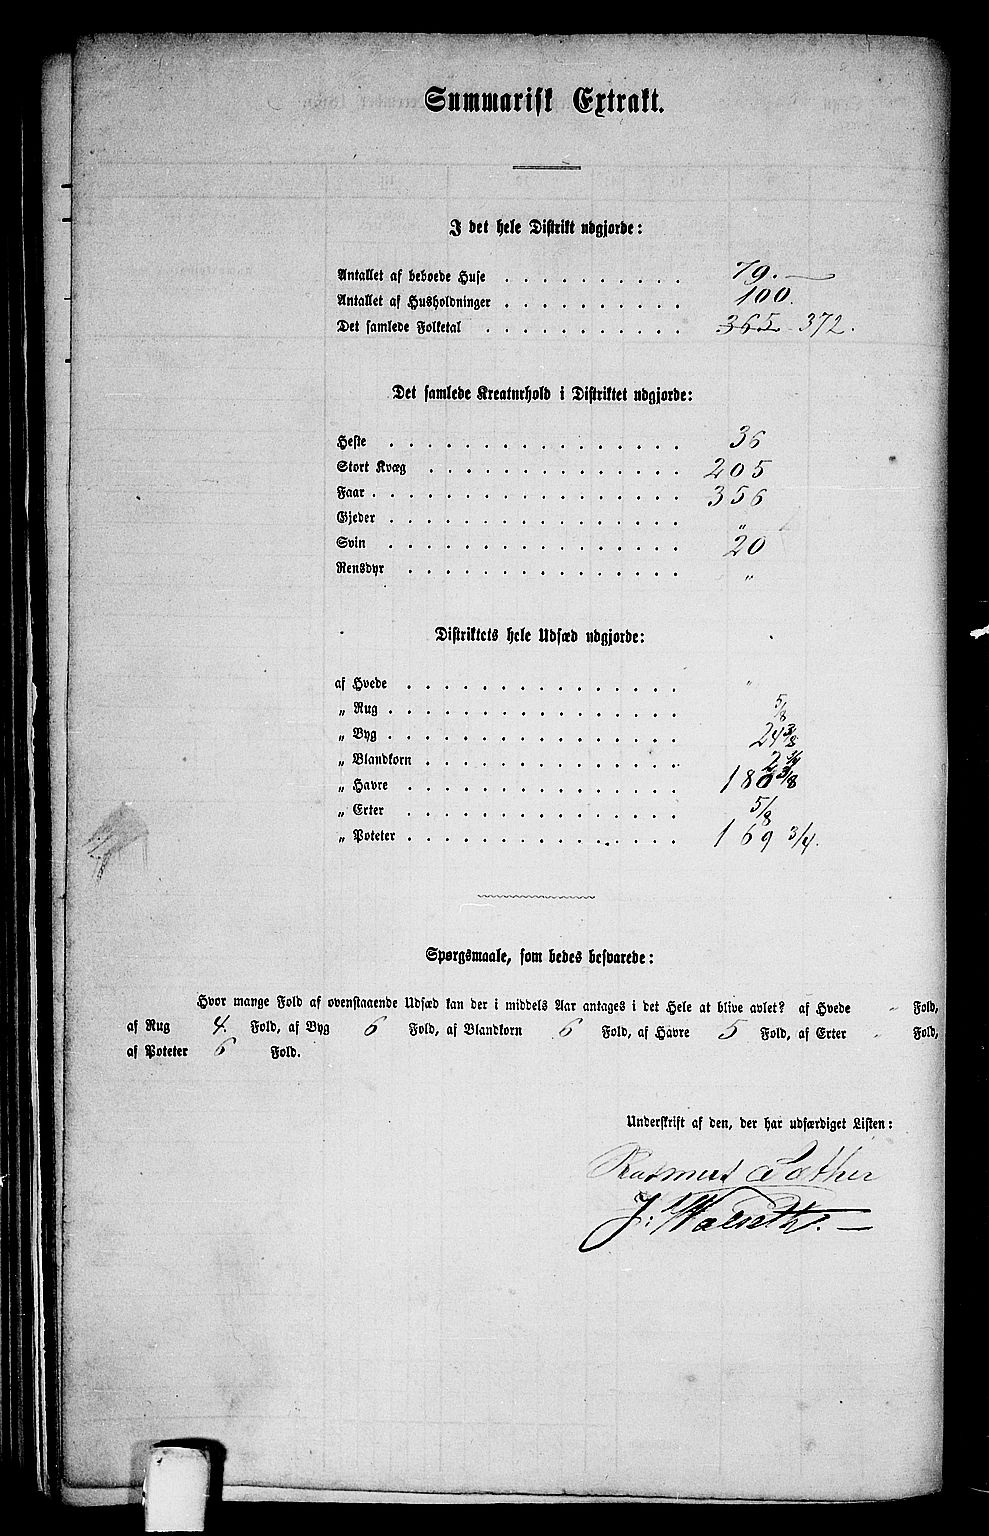 Summarisk Extrakt.
I det hele Distrikt udgjorde:
Antallet af beboede Huse . . . . . . . . . . 79.
Antallet af Husholdninger . . . . . . . . . . 100.
Det samlede Folketal . . . . . . . . . . . 365 372.
Det samlede Kreaturhold i Distriktet udgjorde:
Heste . . . . . . . . . . . . . . . . 36
Stort Kvæg . . . . . . . . . . . . . . 205
Faar . . . . . . . . . . . . . . . . . 356
Gjeder . . . . . . . . . . . . . . . . "
Svin . . . . . . . . . . . . . . . . 20
Rensdyr . . . . . . . . . . . . . . . "
Distriktets hele Udsæd udgjorde:
af Hvede . . . . . . . . . . . . . . . "
„ Rug . . . . . . . . . . . . . . . . 5/8
„ Byg . . . . . . . . . . . . . . . . 24 3/8
„ Blandkorn . . . . . . . . . . . . . . 2 1/4
„ Havre . . . . . . . . . . . . . . . 180 3/8
„ Erter . . . . . . . . . . . . . . . 5/8
„ Poteter . . . . . . . . . . . . . . . 169 3/4.
Spørgsmaale, som bedes besvarede:
Hvor mange Fold af ovenstaaende Udsæd kan der i middels Aar antages i det Hele at blive avlet? af Hvede " Fold,
af Rug 4. Fold, af Byg 6 Fold, af Blandkorn 6 Fold, af Havre 5 Fold, af Erter " Fold,
af Poteter 6 Fold.
Underskrift af den, der har udfærdiget Listen:
Rasmus Sæther
J: